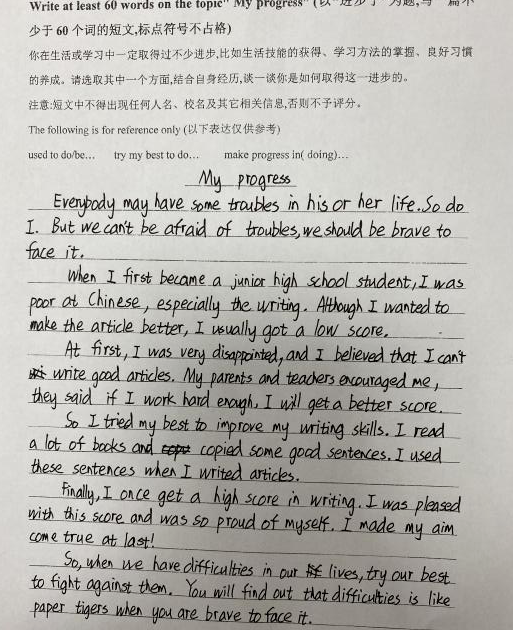 Write at least 60 words on the topic" My progress" (以"进步了"为题,写一篇不
少于 60 个词的短文,标点符号不占格)
你在生活或学习中一定取得过不少进步,比如生活技能的获得、学习方法的掌握、良好习惯
的养成。请选取其中一个方面,结合自身经历,谈一谈你是如何取得这一进步的。
注意:短文中不得出现任何人名、校名及其它相关信息,否则不予评分。
The following is for reference only (以下表达仅供参考)
used to do/be... try my best to do... make progress in( doing)...
My progress
Everybody may have some troubles in his or her life. So do
I. But we can't be afraid of troubles, we should be brave to
face it.
When I first became a junior high school student, I was
poor at Chinese, especially the writing. Although I wanted to
make the article better, I usually got a low score.
At first, I was very disappointed, and I believed that I can't
write good articles. My parents and teachers encouraged me,
they said if I work hard enough, I will get a better score.
So I tried my best to improve my writing skills. I read
a lot of books and copied some good sentences. I used
these sentences when I writed articles.
Finally, I once get a high score in writing. I was pleased
with this score and was so proud of myself. I made my aim
come true at last!
So, when we have difficulties in our lives, try our best
to fight against them. You will find out that difficulties is like
paper tigers when you are brave to face it.